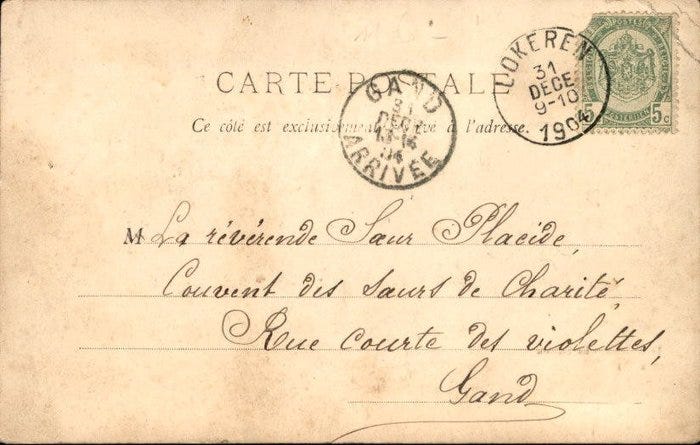 CARTE POSTALE
Ce côté est exclusivement réservé à l'adresse.
GAND
31
DECE
13-14
04
ARRIVÉE
LOKEREN
31
DECE
9-10
1904
5 5c
M La révérende Sœur Placide,
Couvent des sœurs de Charité,
Rue courte des violettes,
Gand